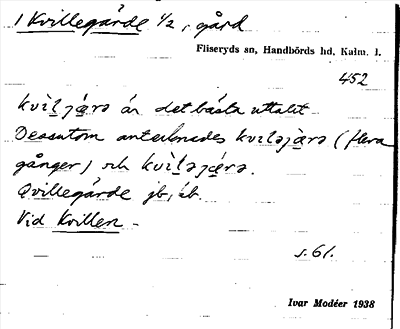 1 Kvillegårde ½, gård
Fliseryds sn, Handbörds hd, Kalm. l.
452
kvìl̠já̠rə är det bästa uttalet
Dessutom antecknades kvìləjà̠rə (flera
gånger) och kvìl̠əjá̠rə.
Qvillegärde jb, äb.
Vid Kvillen -
s. 61.
Ivar Modéer 1938